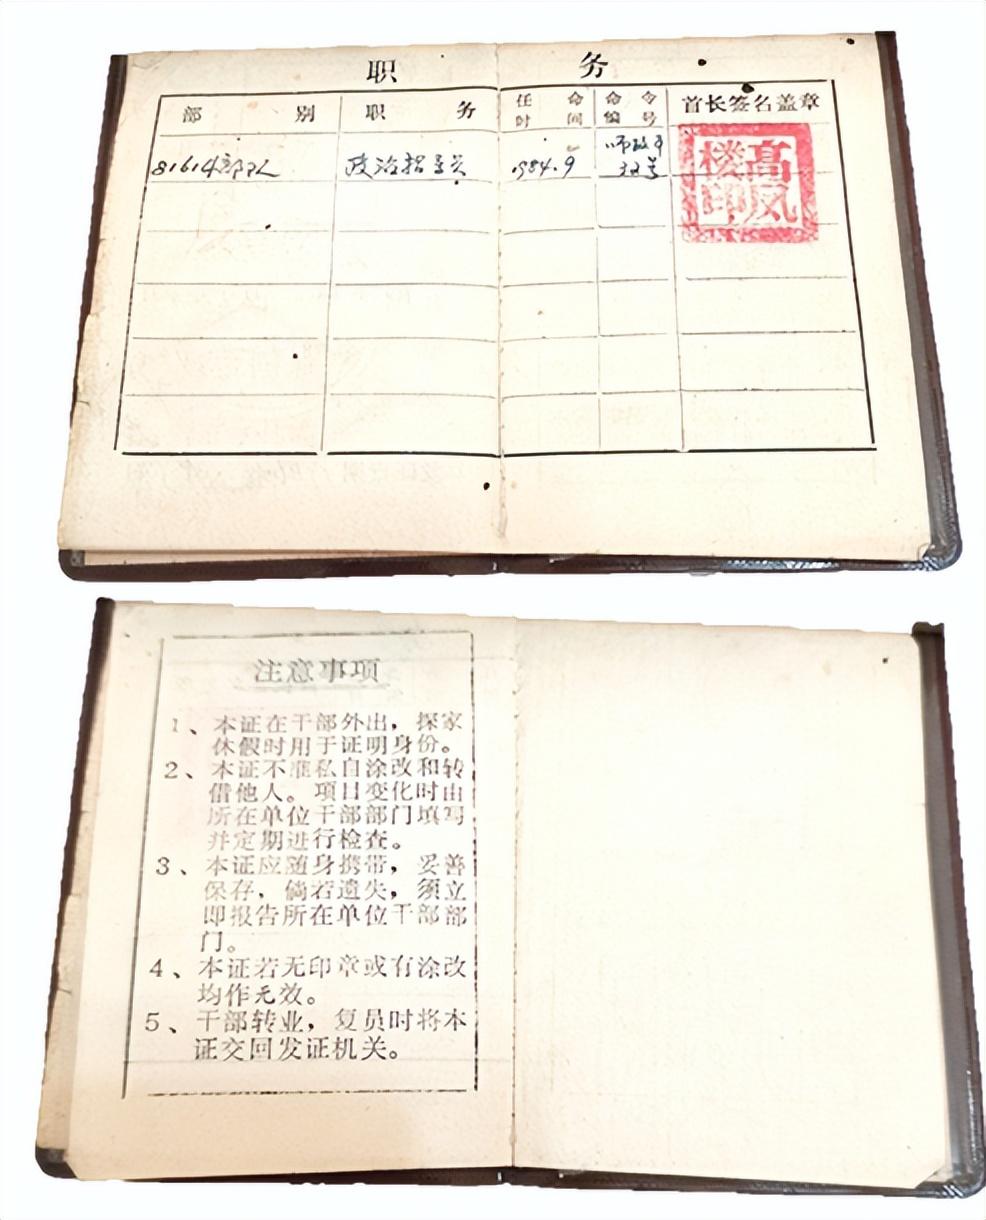 职 务
部 别 职 务 任命时间 命令编号 首长签名盖章
81614部队 政治指导员 1984.9 师政干
33号
高凤楼印
注意事项
1、本证在干部外出，探家
休假时用于证明身份。
2、本证不准私自涂改和转
借他人。项目变化时由
所在单位干部部门填写
并定期进行检查。
3、本证应随身携带，妥善
保存，倘若遗失，须立
即报告所在单位干部部
门。
4、本证若无印章或有涂改
均作无效。
5、干部转业，复员时将本
证交回发证机关。